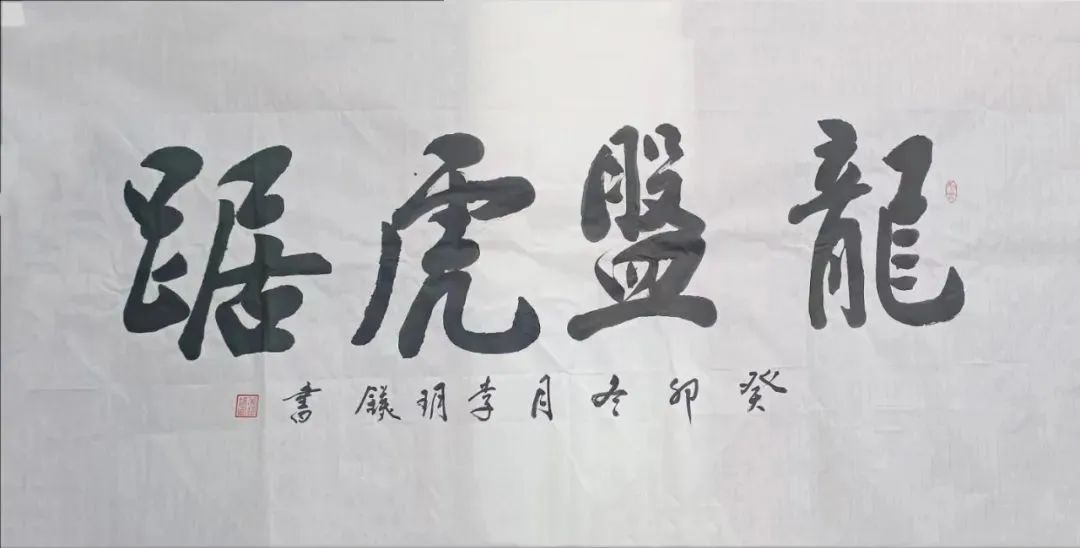 龍盤虎踞
癸卯冬月李玥書